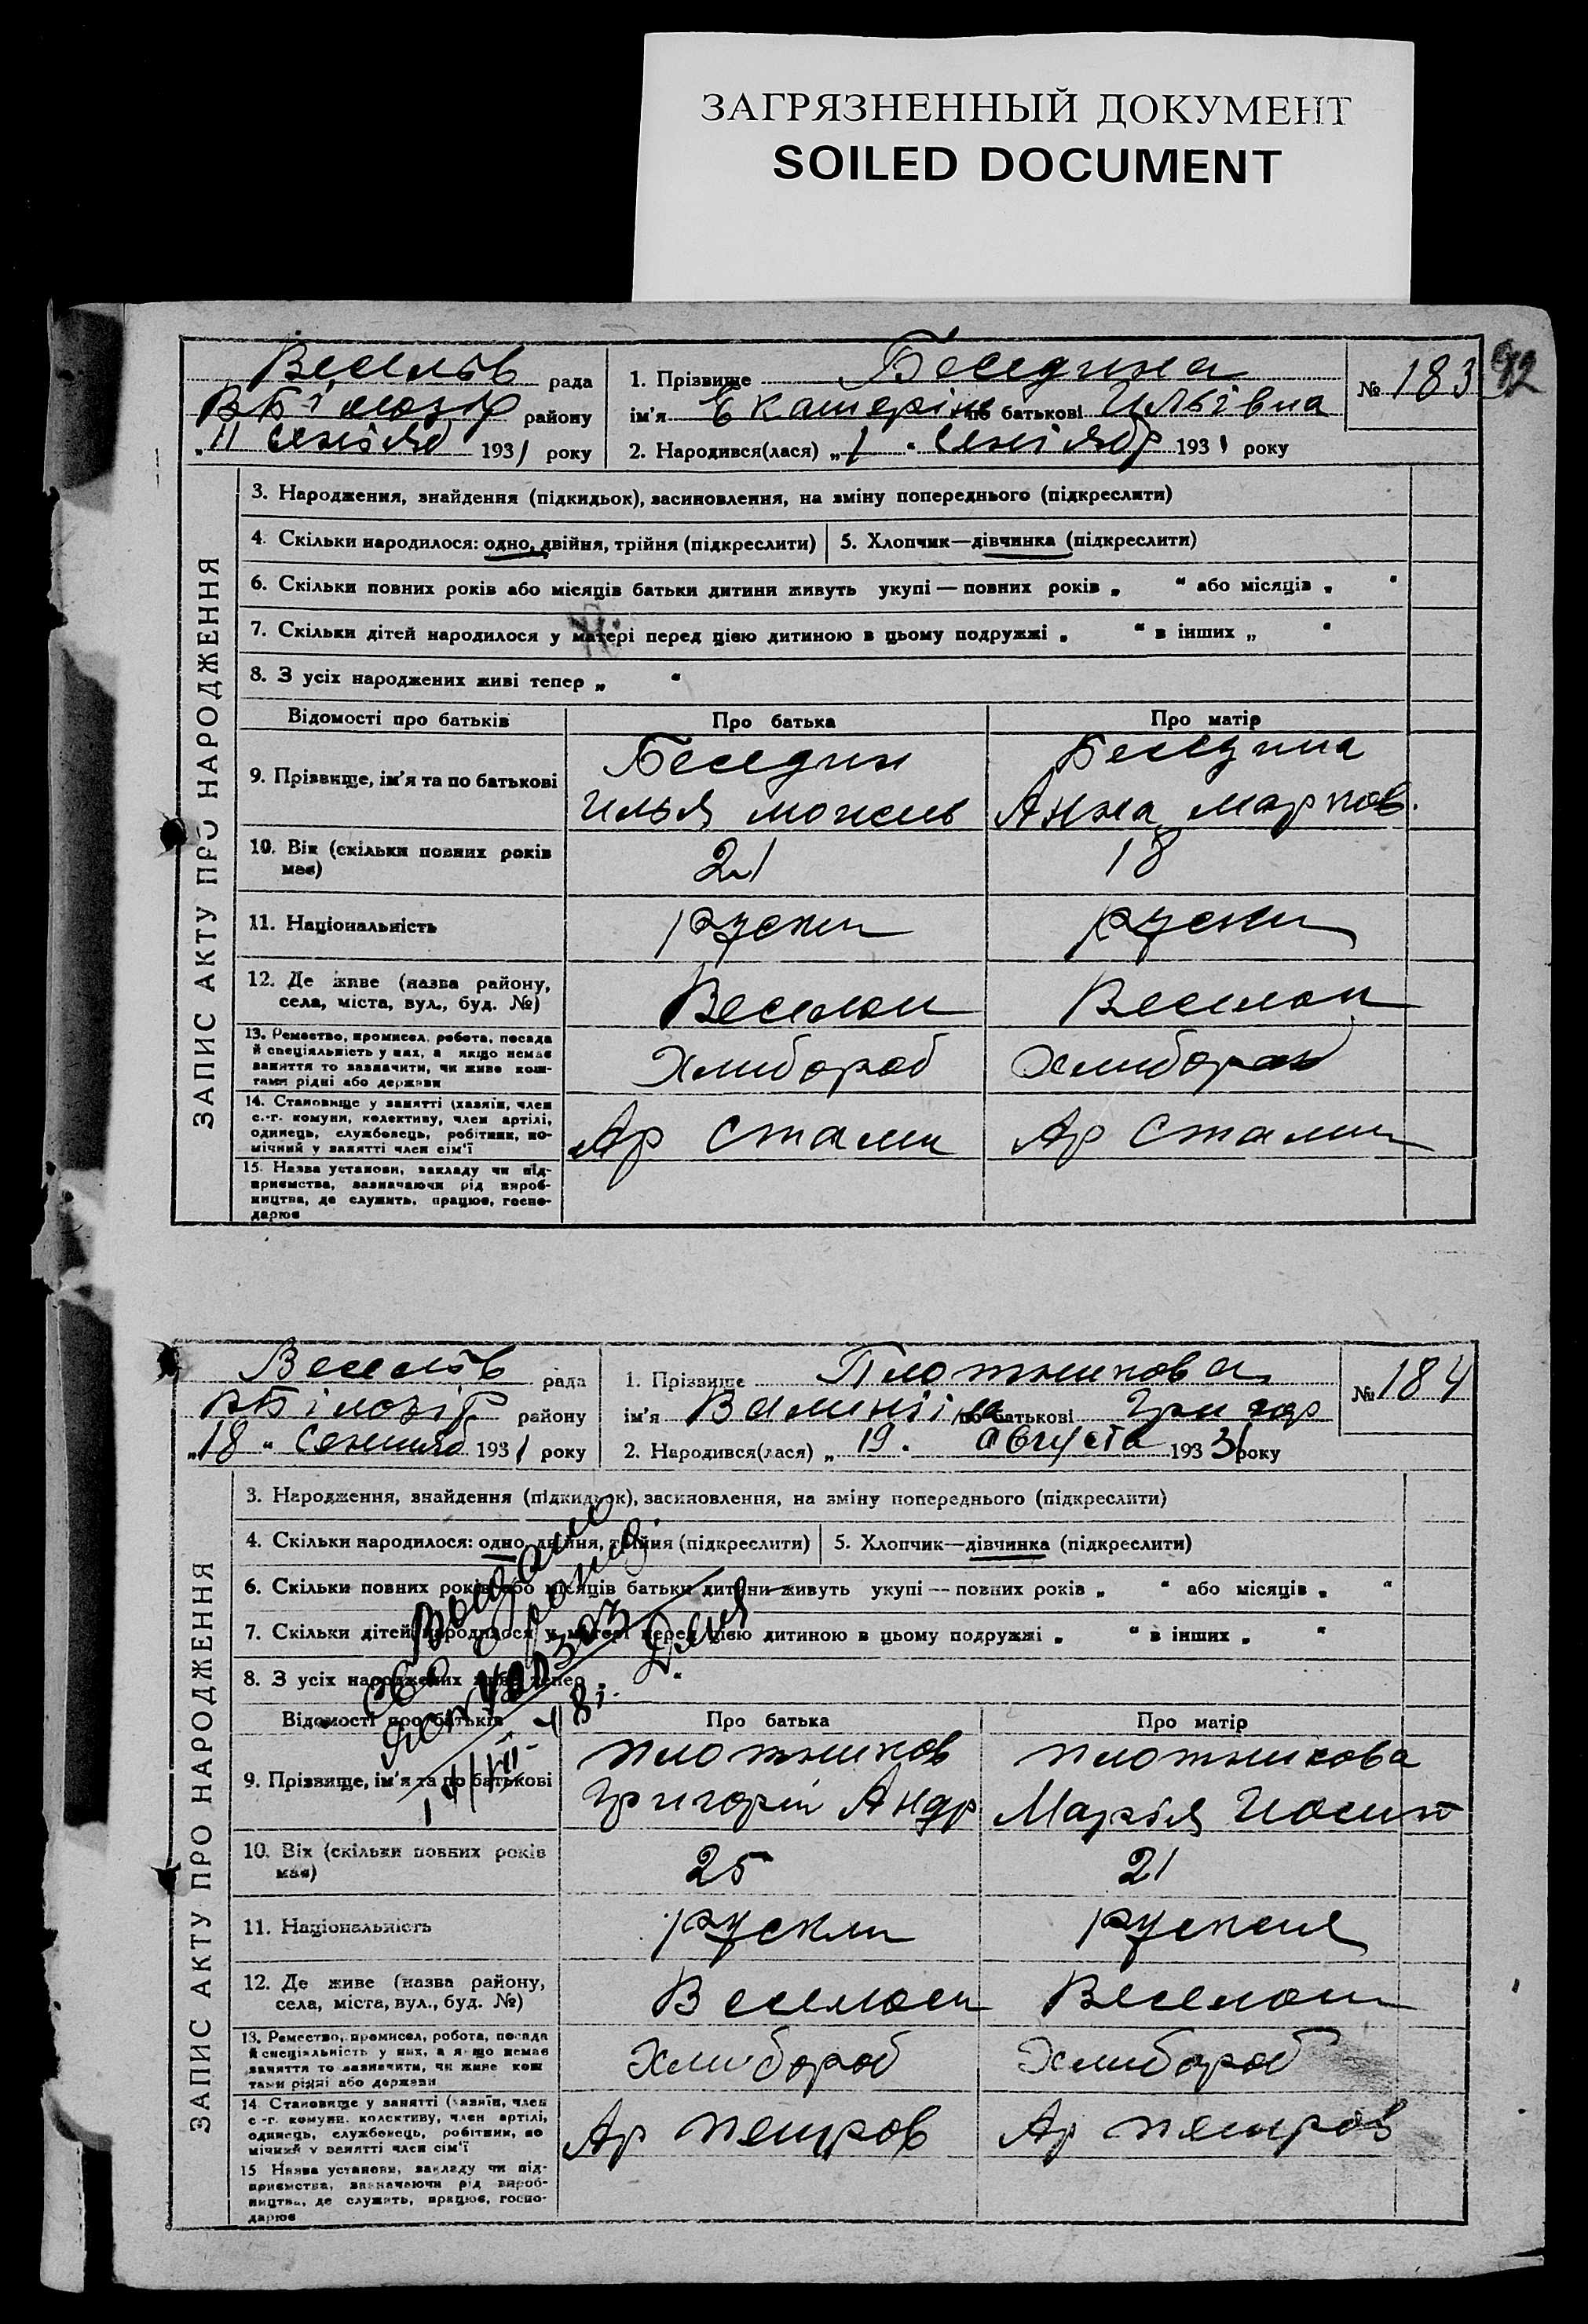 ЗАГРЯЗНЕННЫЙ ДОКУМЕНТ
SOILED DOCUMENT
92
Веселів рада
ВБілозір району
"11 сентяб 1931 року
1. Прізвище Беседина
ім'я Екатеріна по батькові Ильівна
2. Народився(лася) „1" сентябр 1931 року
№ 183
ЗАПИС АКТУ ПРО НАРОДЖЕННЯ
3. Народження, знайдення (підкидьок), засиновлення, на зміну попереднього (підкреслити)
4. Скільки народилося: одно, двійня, трійня (підкреслити)
5. Хлопчик—дівчинка (підкреслити)
6. Скільки повних років або місяців батьки дитини живуть укупі — повних років „ “ або місяців „ “
7. Скільки дітей народилося у матері перед цією дитиною в цьому подружжі „ “ в інших „ “
8. З усіх народжених живі тепер „ “
Відомості про батьків Про батька Про матір
9. Прізвище, ім'я та по батькові
Беседин
Илья Моисев
Беседина
Анна Марков.
10. Вік (скільки повних років має)
21 18
11. Національність
руски руски
12. Де живе (назва району, села, міста, вул., буд. №)
Веселом Веселом
13. Ремество, промисел, робота, посада
й спеціяльність у них, а якщо немає
заняття то зазначити, чи живе кош-
тами рідні або держави
Хлибороб Хлибороб
14. Становище у занятті (хазяїн, член
с.-г. комуни, колективу, член артілі,
одинець, службовець, робітник, по-
мічний у занятті член сім'ї
Ар Стали Ар Стали
15. Назва установи, закладу чи під-
приємства, зазначаючи рід вироб-
ництва, де служить, працює, госпо-
дарює
Веселів рада
ВБілозір району
„18" сентяб 1931 року
1. Прізвище Плотникова
ім'я Валинтіна по батькові Григор
2. Народився(лася) „19. августа 1931 року
№ 184
ЗАПИС АКТУ ПРО НАРОДЖЕННЯ
3. Народження, знайдення (підкидьок), засиновлення, на зміну попереднього (підкреслити)
4. Скільки народилося: одно, двійня, трійня (підкреслити)
5. Хлопчик—дівчинка (підкреслити)
6. Скільки повних років або місяців батьки дитини живуть укупі — повних років „ “ або місяців „ “
7. Скільки дітей народилося у матері перед цією дитиною в цьому подружжі „ “ в інших „ “
8. З усіх народжених живі тепер „ “
Видано
Відомості про батьків Про батька Про матір
9. Прізвище, ім'я та по батькові
Плотников
Григорій Андр
Плотникова
Марія Иосип
10. Вік (скільки повних років має)
25 21
11. Національність
руски руские
12. Де живе (назва району, села, міста, вул., буд. №)
Веселом Веселом
13. Ремество, промисел, робота, посада
й спеціяльність у них, а якщо немає
заняття то зазначити, чи живе кош
тами рідні або держави
Хлибороб Хлибороб
14 Становище у занятті (хазяїн, член
с-г. комуни, колективу, член артілі,
одинець, службовець, робітник, по
мічний у занятті член сім'ї
Ар Петров Ар Петров
15 Назва установи, закладу чи під-
приємства, зазначаючи рід вироб-
ництва, де служить, працює, госпо-
дарює